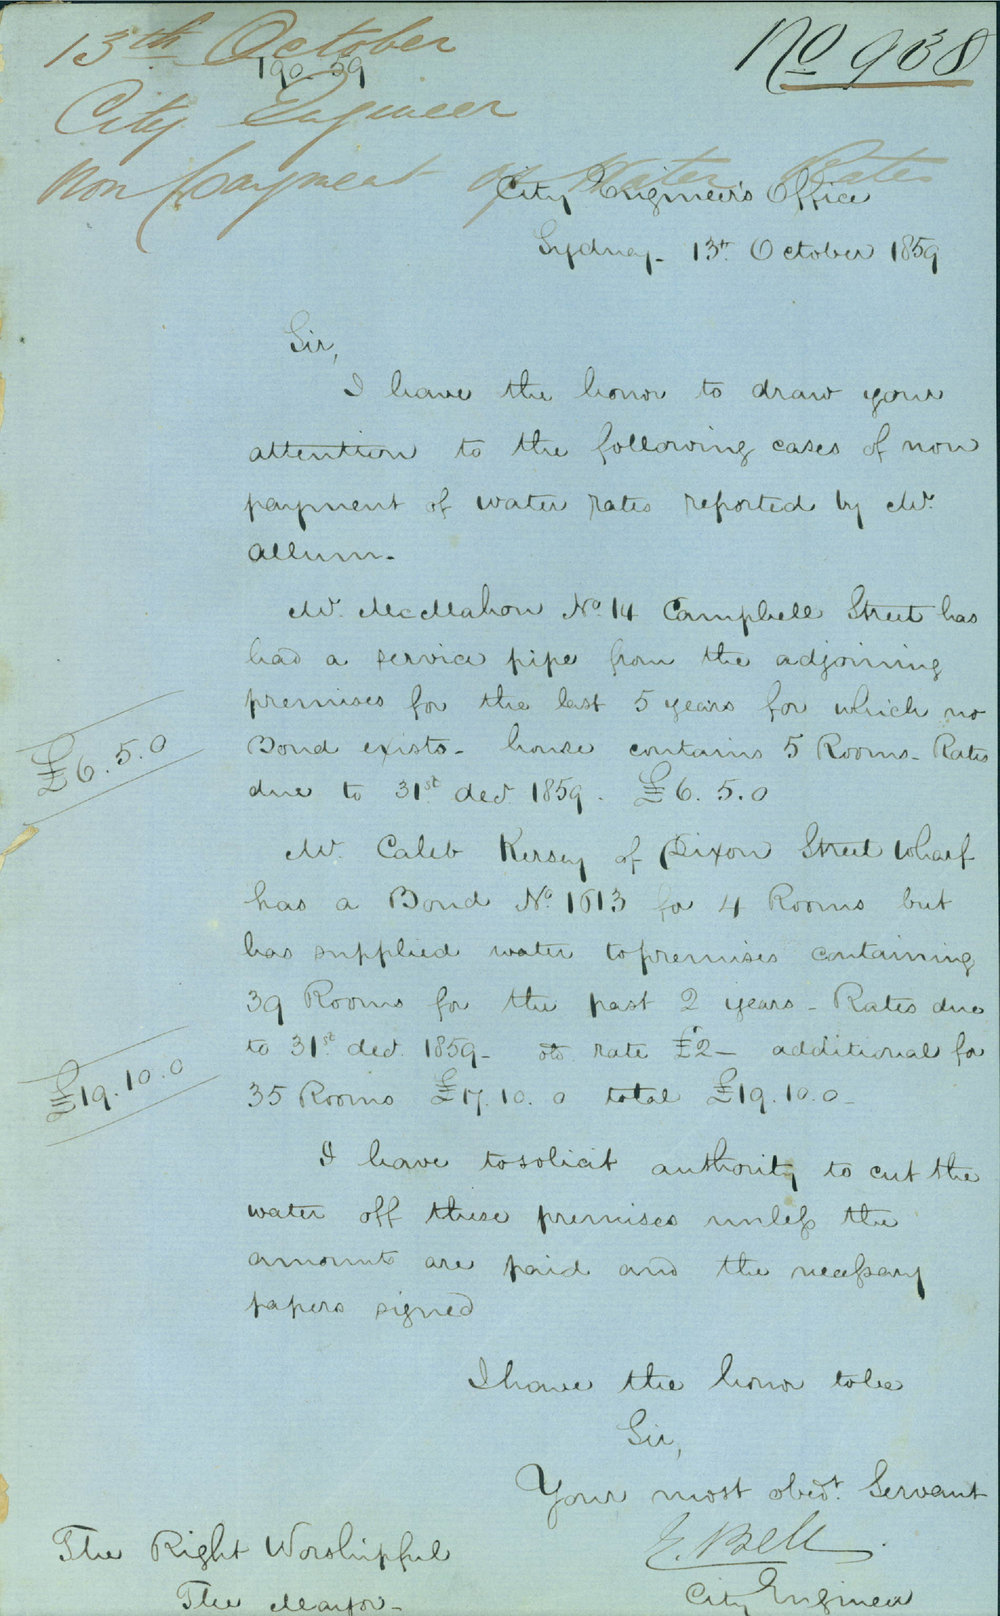 13th October
No 938
190.59
City Engineer
Non payment of Water Rates
City Engineer's Office
Sydney - 13th October 1859
Sir,
I have the honor to draw your
attention to the following cases of non
payment of water rates reported by Mr.
Allum.
Mr. McMahon No. 14 Campbell Street has
had a service pipe from the adjoining
premises for the last 5 years for which no
Bond exists - house contains 5 Rooms - Rates
due to 31st decr 1859. £6. 5. 0
£6. 5. 0
Mr. Caleb Kersey of Dixon Street Wharf
has a Bond No. 1613 for 4 Rooms but
has supplied water to premises containing
39 Rooms for the past 2 years - Rates due
to 31st decr. 1859 - rate £2 - additional for
35 Rooms £17. 10. 0 total £19. 10. 0 -
£19. 10. 0
I have to solicit authority to cut the
water off these premises unless the
amounts are paid and the necessary
papers signed
I have the honor to be
Sir,
Your most obedt. Servant
E. Bell
City Engineer
The Right Worshipful
The Mayor -